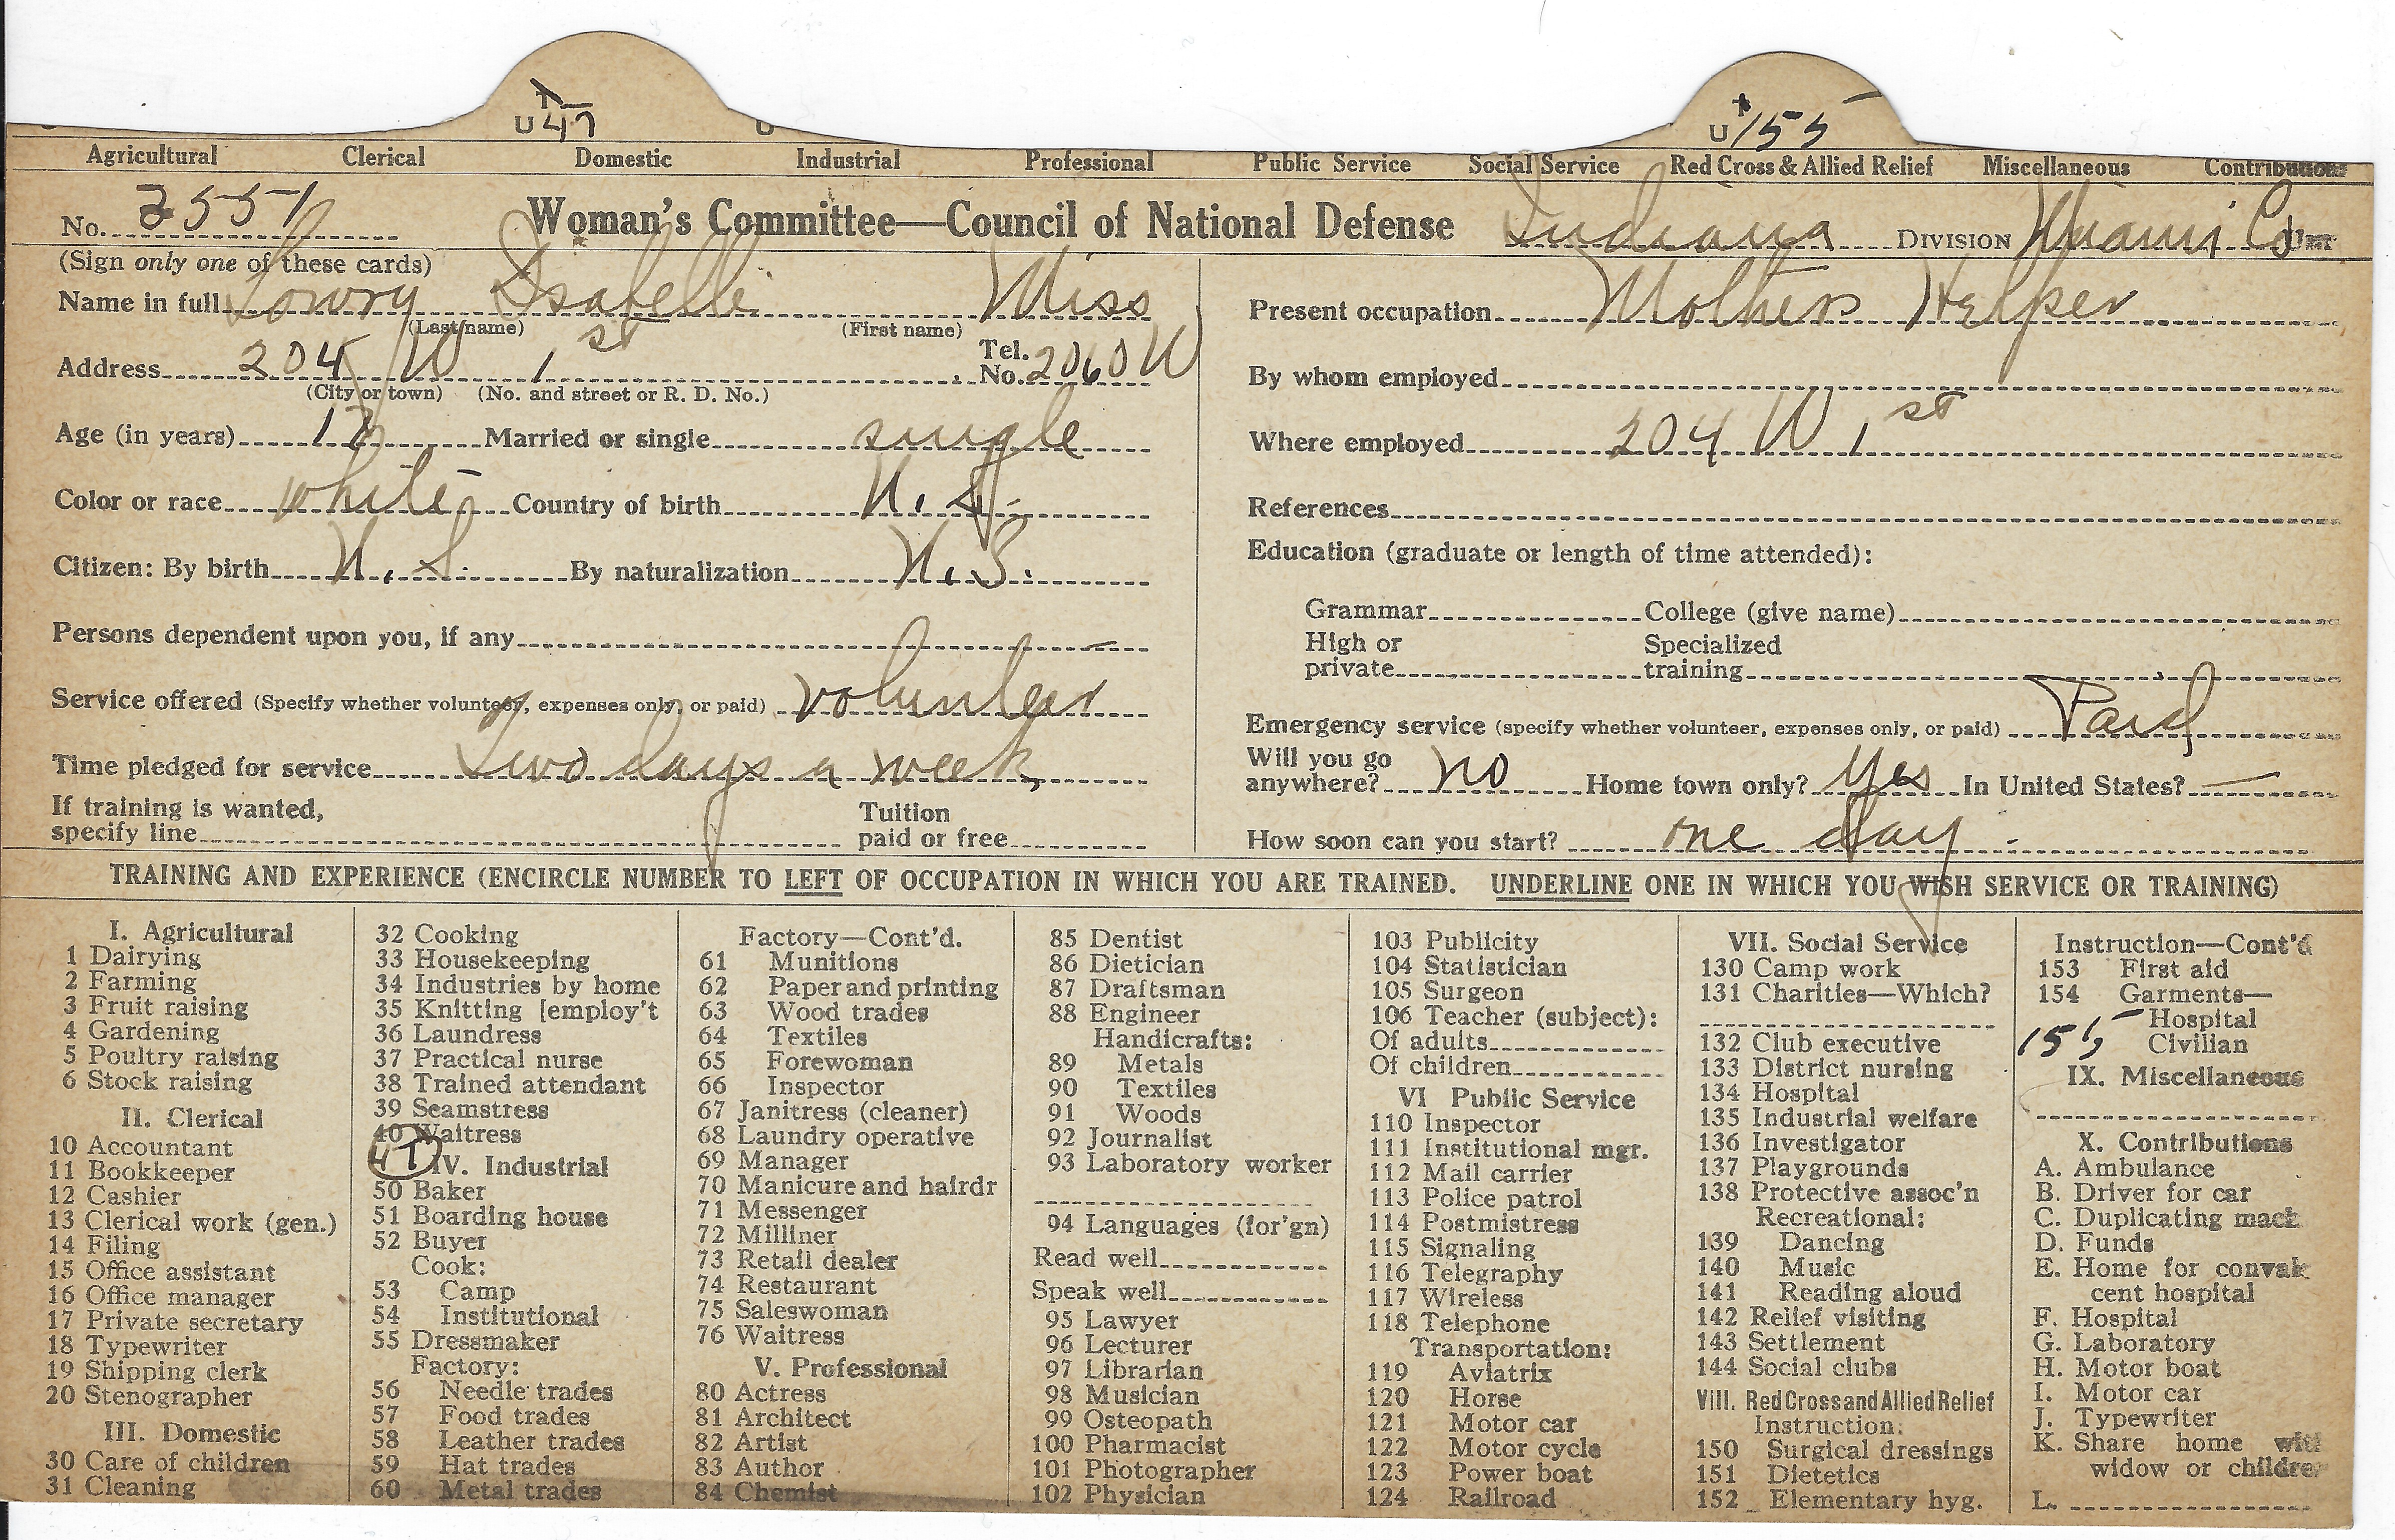 U 47 U U 155
Agricultural Clerical Domestic Industrial Professional Public Service Social Service Red Cross & Allied Relief Miscellaneous Contributions
No. 3551 Woman's Committee—Council of National Defense Indiana DIVISION Miami Co Unit
(Sign only one of these cards)
Name in full Lowry Isabelle Miss
(Last name) (First name)
Address 204 W 1st Tel. No. 2060 W
(City or town) (No. and street or R. D. No.)
Age (in years) Married or single single
Color or race white Country of birth U.S.
Citizen: By birth U.S. By naturalization U.S.
Persons dependent upon you, if any —
Service offered (Specify whether volunteer, expenses only, or paid) volunteer
Time pledged for service Two days a week
If training is wanted, specify line Tuition paid or free
Present occupation Mothers Helper
By whom employed
Where employed 204 W 1st
References
Education (graduate or length of time attended):
Grammar College (give name)
High or private Specialized training
Emergency service (specify whether volunteer, expenses only, or paid) Paid
Will you go anywhere? no Home town only? Yes In United States? —
How soon can you start? one day.
TRAINING AND EXPERIENCE (ENCIRCLE NUMBER TO LEFT OF OCCUPATION IN WHICH YOU ARE TRAINED. UNDERLINE ONE IN WHICH YOU WISH SERVICE OR TRAINING)
I. Agricultural
1 Dairying
2 Farming
3 Fruit raising
4 Gardening
5 Poultry raising
6 Stock raising
II. Clerical
10 Accountant
11 Bookkeeper
12 Cashier
13 Clerical work (gen.)
14 Filing
15 Office assistant
16 Office manager
17 Private secretary
18 Typewriter
19 Shipping clerk
20 Stenographer
III. Domestic
30 Care of children
31 Cleaning
32 Cooking
33 Housekeeping
34 Industries by home
35 Knitting [employ't
36 Laundress
37 Practical nurse
38 Trained attendant
39 Seamstress
40 Waitress
47 IV. Industrial
50 Baker
51 Boarding house
52 Buyer
Cook:
53 Camp
54 Institutional
55 Dressmaker
Factory:
56 Needle trades
57 Food trades
58 Leather trades
59 Hat trades
60 Metal trades
Factory—Cont'd.
61 Munitions
62 Paper and printing
63 Wood trades
64 Textiles
65 Forewoman
66 Inspector
67 Janitress (cleaner)
68 Laundry operative
69 Manager
70 Manicure and hairdr
71 Messenger
72 Milliner
73 Retail dealer
74 Restaurant
75 Saleswoman
76 Waitress
V. Professional
80 Actress
81 Architect
82 Artist
83 Author
84 Chemist
85 Dentist
86 Dietician
87 Draftsman
88 Engineer
Handicrafts:
89 Metals
90 Textiles
91 Woods
92 Journalist
93 Laboratory worker
94 Languages (for'gn)
Read well
Speak well
95 Lawyer
96 Lecturer
97 Librarian
98 Musician
99 Osteopath
100 Pharmacist
101 Photographer
102 Physician
103 Publicity
104 Statistician
105 Surgeon
106 Teacher (subject):
Of adults
Of children
VI Public Service
110 Inspector
111 Institutional mgr.
112 Mail carrier
113 Police patrol
114 Postmistress
115 Signaling
116 Telegraphy
117 Wireless
118 Telephone
Transportation:
119 Aviatrix
120 Horse
121 Motor car
122 Motor cycle
123 Power boat
124 Railroad
VII. Social Service
130 Camp work
131 Charities—Which?
132 Club executive
133 District nursing
134 Hospital
135 Industrial welfare
136 Investigator
137 Playgrounds
138 Protective assoc'n
Recreational:
139 Dancing
140 Music
141 Reading aloud
142 Relief visiting
143 Settlement
144 Social clubs
VIII. Red Cross and Allied Relief
Instruction:
150 Surgical dressings
151 Dietetics
152 Elementary hyg.
Instruction—Cont'd
153 First aid
154 Garments—
Hospital
155 Civilian
IX. Miscellaneous
X. Contributions
A. Ambulance
B. Driver for car
C. Duplicating mach
D. Funds
E. Home for convales
cent hospital
F. Hospital
G. Laboratory
H. Motor boat
I. Motor car
J. Typewriter
K. Share home with
widow or children
L.